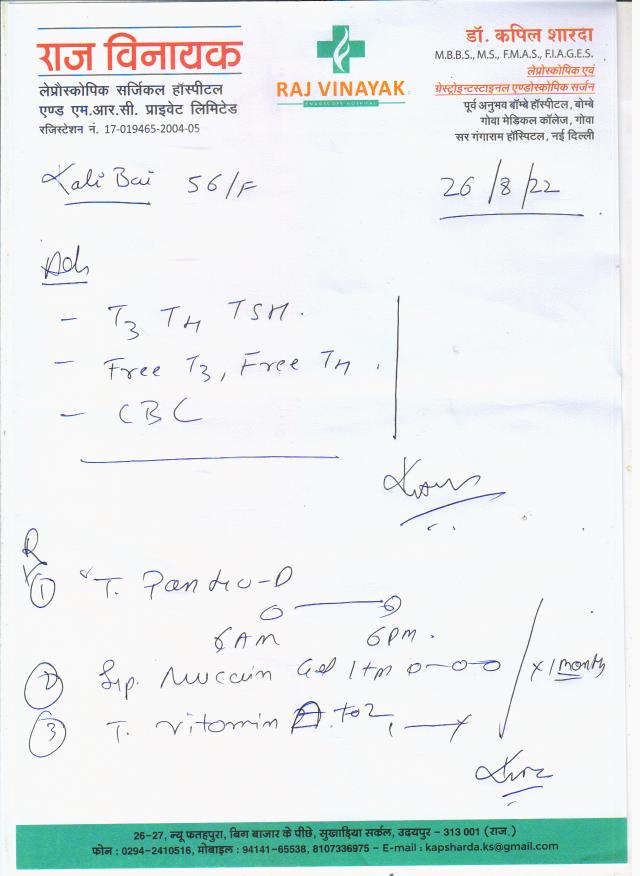 राज विनायक
लेप्रौस्कोपिक सर्जिकल हॉस्पीटल
एण्ड एम.आर.सी. प्राइवेट लिमिटेड
रजिस्टेशन नं. 17-019465-2004-05
RAJ VINAYAK
ENDOSCOPY HOSPITAL
डॉ. कपिल शारदा
M.B.B.S., M.S., F.M.A.S., F.I.A.G.E.S.
लेप्रोस्कोपिक एवं
ग्रेस्ट्रोइन्टस्टाइनल एण्डोस्कोपिक सर्जन
पूर्व अनुभव बॉम्बे हॉस्पीटल, बोम्बे
गोवा मेडिकल कॉलेज, गोवा
सर गंगाराम हॉस्पिटल, नई दिल्ली
Kali Bai 56/F 26/8/22
Adv
- T3 T4 TSH.
- Free T3, Free T4.
- CBC
R
1 T. Panto-D
6 AM 6 PM.
2 Syp. Mucain Gel 1 tm 0-0-0 x 1 month
3 T. Vitamin
26-27, न्यू फतहपुरा, बिग बाजार के पीछे, सुखाड़िया सर्कल, उदयपुर - 313 001 (राज.)
फोन : 0294-2410516, मोबाइल : 94141-65538, 8107336975 - E-mail : kapsharda.ks@gmail.com